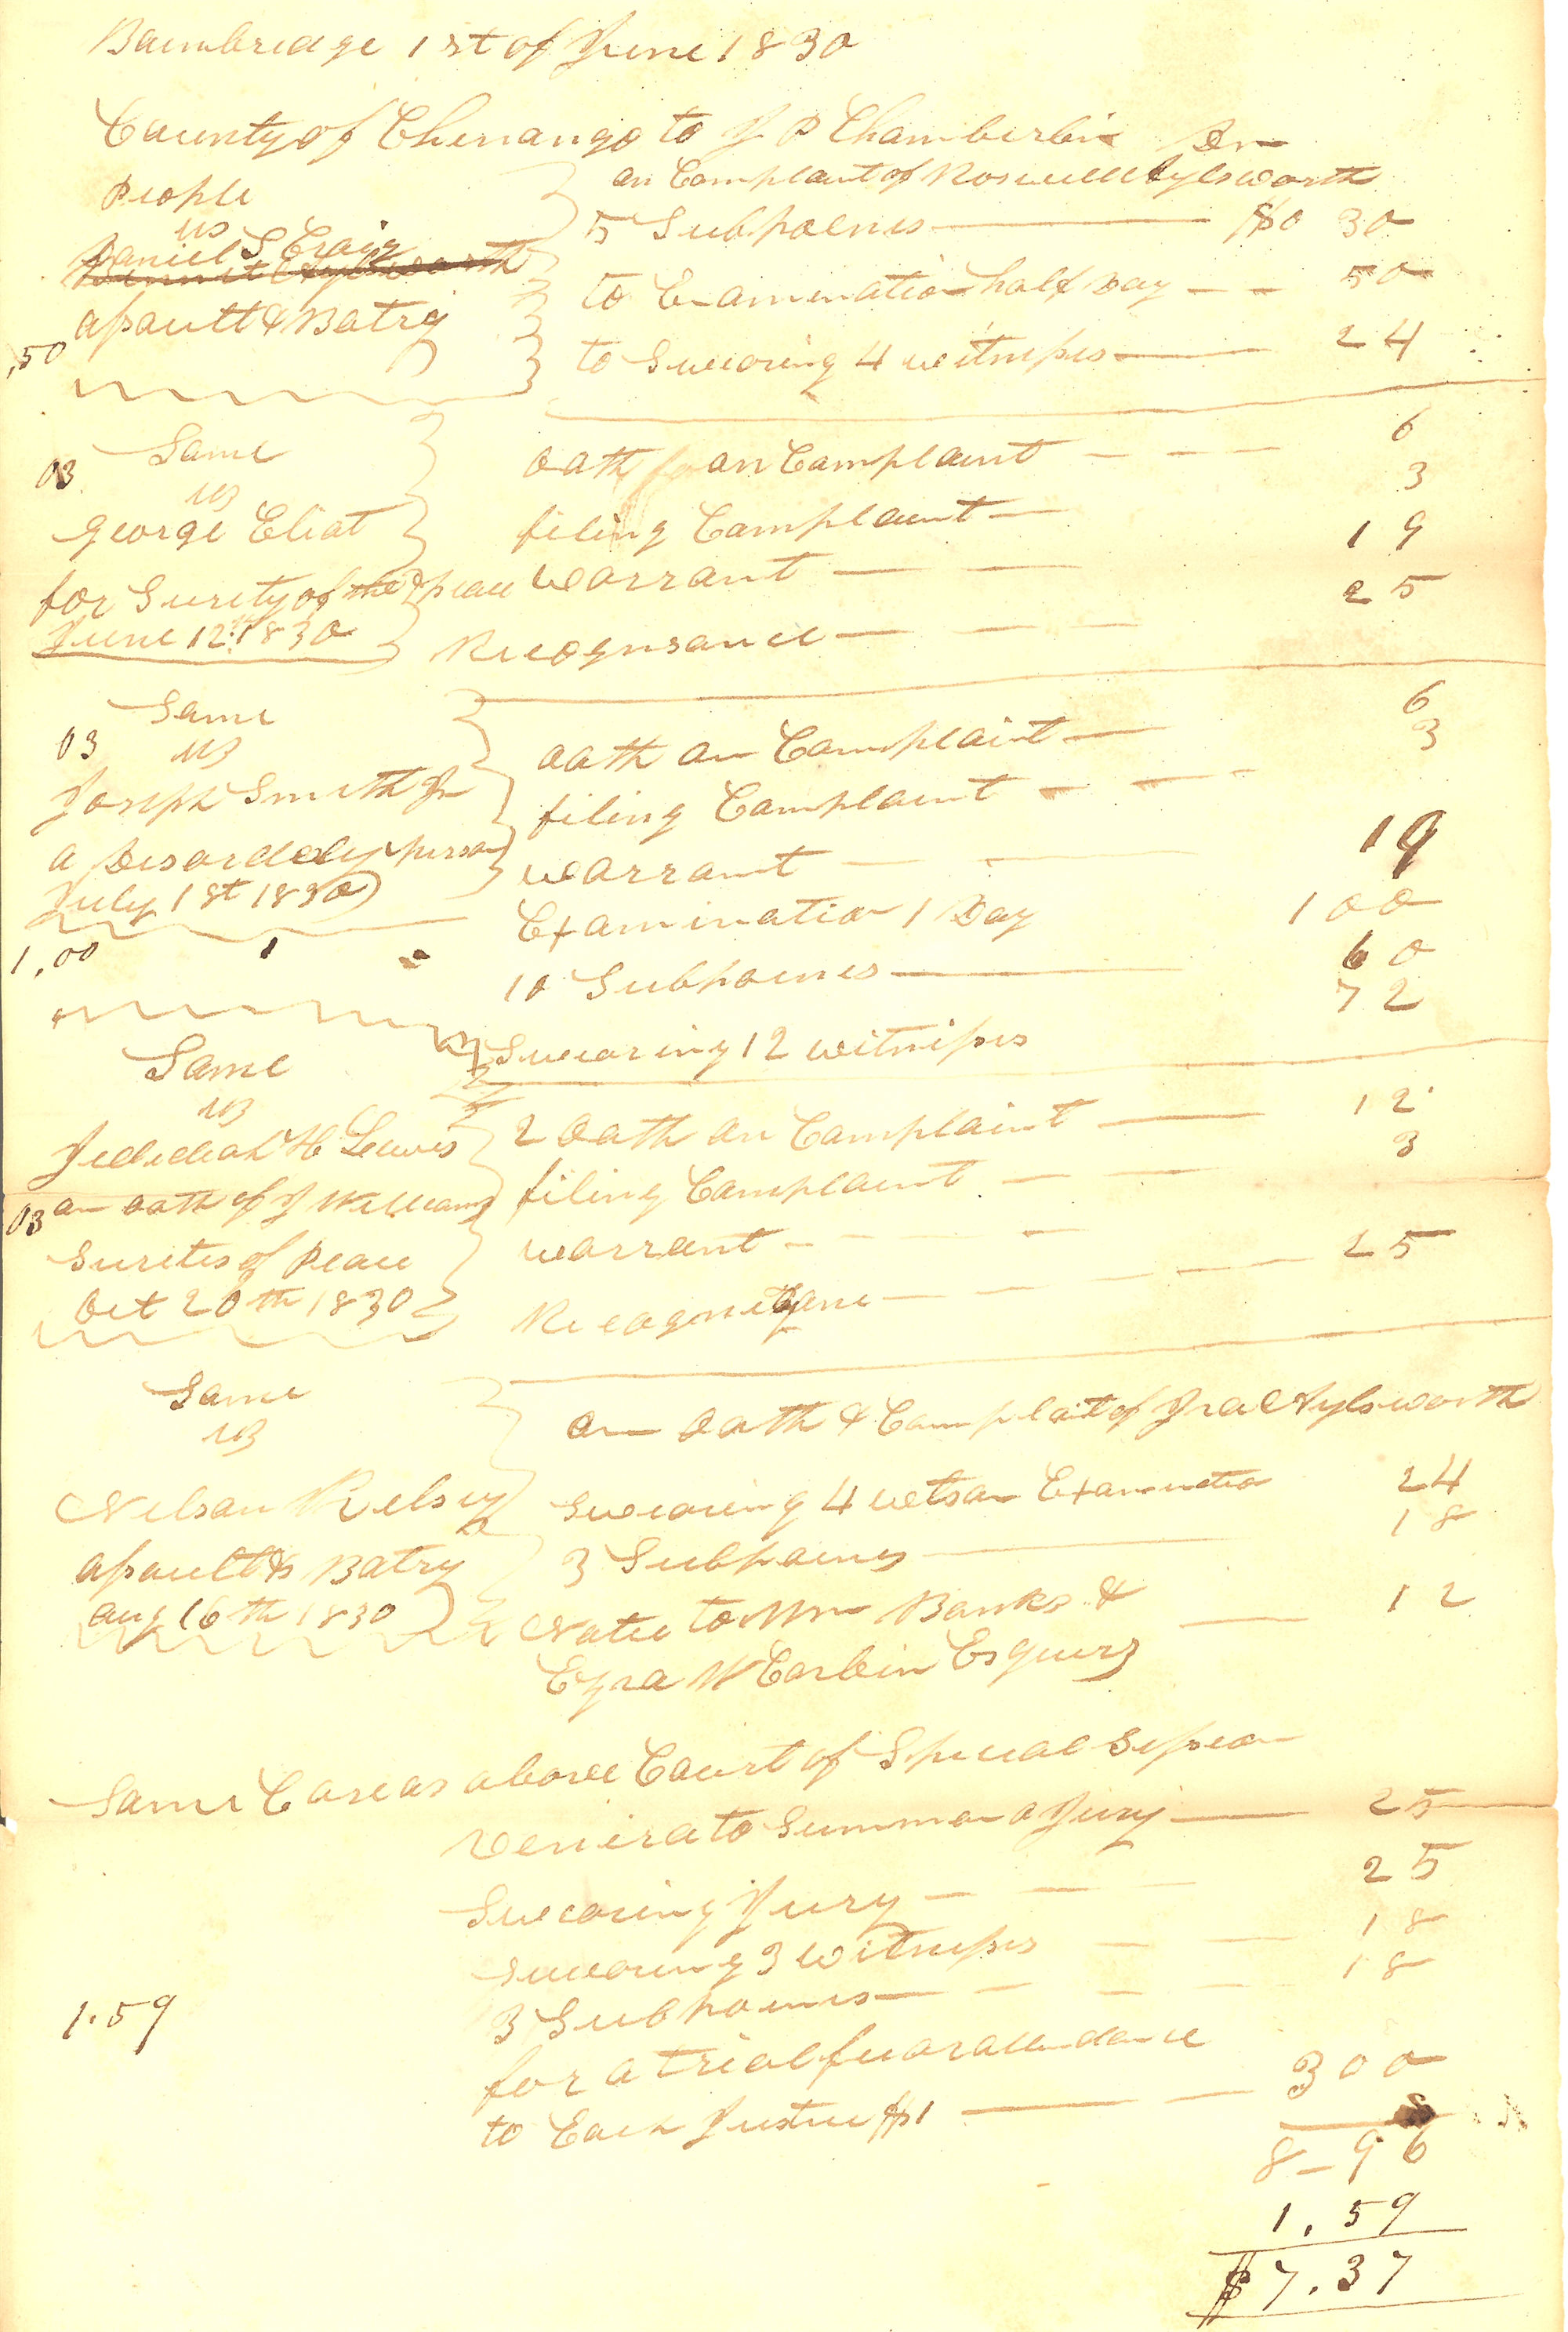 Bainbridge 1st of June 1830
County of Chenango to J P Chamberlin Dr
People on Complaint of Roswell Aylsworth
vs 5 Subpoenes $0 30
Daniel S Craig
to Examination half Day 50
assault & Batry
.50 to Swearing 4 witnesses 24
Same oath on Complaint 6
03
vs filing Complaint 3
George Eliot
for Surety of the peace warrant 19
June 12th 1830 Recognsance 25
Same oath on Complaint 6
03 vs
Joseph Smith Jr filing Complaint 3
a Disorderly person warrant 19
July 1st 1830 Examination 1 Day 100
1.00 10 Subpoenes 60
Swearing 12 witnesses 72
Same
vs 2 oath on Complaint 12
Jedediah H Lewis
03 on oath of J Williams filing Complaint 3
Suretes of Peace warrant
Oct 20th 1830 Recognizane 25
Same on oath & Complait of Ira Aylsworth
vs
Nelson Kelsey Swearing 4 wits on Examinatio 24
assault & Batry 3 Subpoenes 18
Aug 16th 1830 Notice to Wm Banks & 12
Ezra W Corbin Esquirs
Same Case as above Court of Special Session
Venira to Summon a Jury 25
Swearing Jury 25
Swearing 3 witnesses 18
1.59 3 Subpoenes 18
for a trial fee for attendance
to Each Justice $1 300
8-96
1.59
$7.37